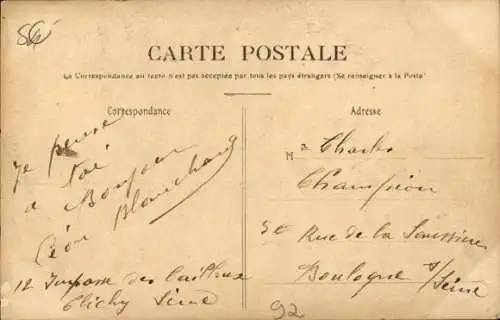 86
CARTE POSTALE
La Correspondance au recto n'est pas acceptée par tous les pays étrangers (Se renseigner à la Poste)
Correspondance
Je pense
a toi
Bonjour
Léon Blanchard
12 Impasse des Cailloux
Clichy Seine
Adresse
M Charles
Champion
Rue de la Saussière
Boulogne s/ Seine
92